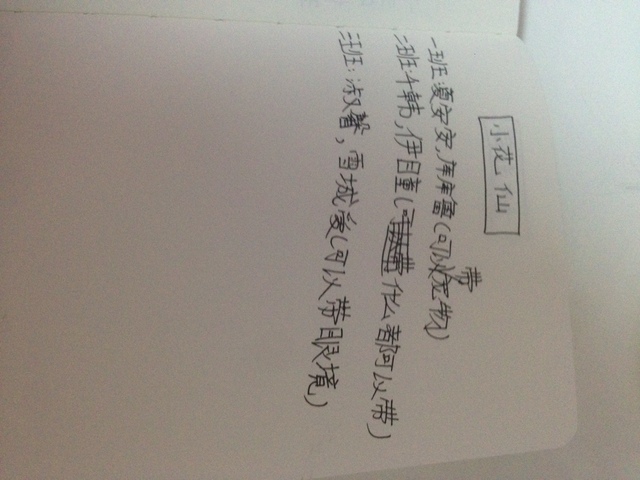 小花仙
一班:夏安安,库库鲁(可以带宠物)
二班:千韩,伊瞳(什么都可以带)
三班:淑馨,雪城爱(可以带眼境)